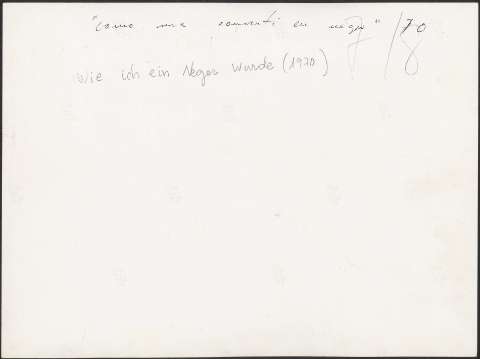 "Como me converti en negro" /70
Wie ich ein Neger wurde (1970)